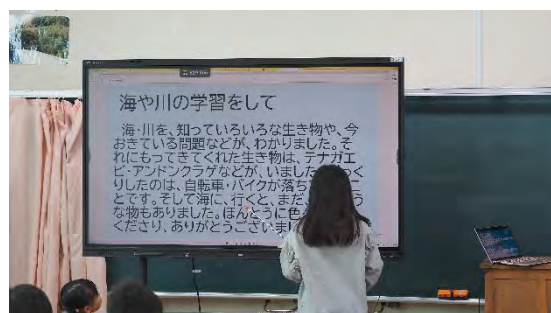 海や川の学習をして
海・川を、知っていろいろな生き物や、今
おきている問題などが、わかりました。そ
れにもってきてくれた生き物は、テナガエ
ビ・アンドンクラゲなどが、いました。
りしたのは、自転車・バイクが落ち
とです。そして海に、行くと、まだ、
な物もありました。ほんとうに色
くださり、ありがとうございまし